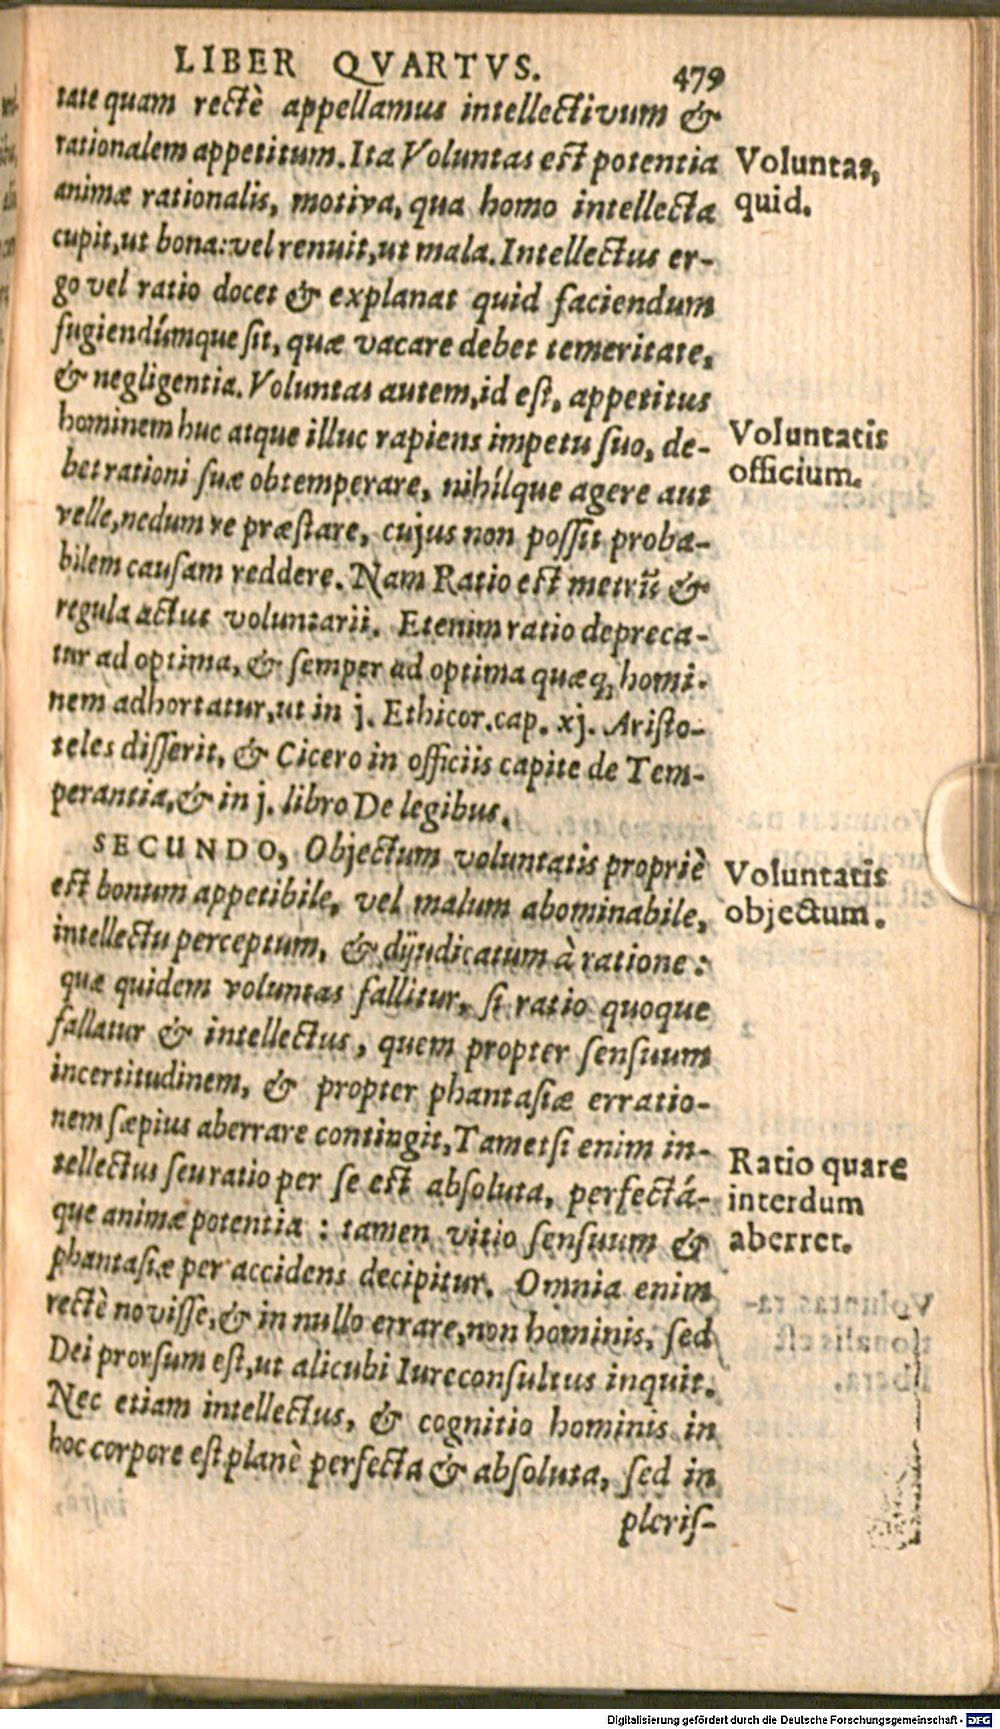 LIBER QVARTVS. 479
tate quam rectè appellamus intellectivum &
rationalem appetitum. Ita Voluntas est potentia
animæ rationalis, motiva, qua homo intellecta
cupit, ut bona: vel renuit, ut mala. Intellectus er-
go vel ratio docet & explanat quid faciendum
fugiendúmque sit, quæ vacare debet temeritate,
& negligentia. Voluntas autem, id est, appetitus
hominem huc atque illuc rapiens impetu suo, de-
bet rationi suæ obtemperare, nihílque agere aut
velle, nedum re præstare, cujus non possit proba-
bilem causam reddere. Nam Ratio est metrũ &
regula actus voluntarii. Etenim ratio depreca-
tur ad optima, & semper ad optima quæq; homi-
nem adhortatur, ut in j. Ethicor. cap. xj. Aristo-
teles disserit, & Cicero in officiis capite de Tem-
perantia, & in j. libro De legibus.
SECUNDO, Objectum voluntatis propriè
est bonum appetibile, vel malum abominabile,
intellectu perceptum, & dijudicatum à ratione:
quæ quidem voluntas fallitur, si ratio quoque
fallatur & intellectus, quem propter sensuum
incertitudinem, & propter phantasiæ erratio-
nem sæpius aberrare contingit, Tametsi enim in-
tellectus seu ratio per se est absoluta, perfectá-
que animæ potentia: tamen vitio sensuum &
phantasiæ per accidens decipitur. Omnia enim
rectè novisse, & in nullo errare, non hominis, sed
Dei prorsum est, ut alicubi Iureconsultus inquit.
Nec etiam intellectus, & cognitio hominis in
hoc corpore est planè perfecta & absoluta, sed in
pleris-
Voluntas,
quid.
Voluntatis
officium.
Voluntatis
objectum.
Ratio quare
interdum
aberret.
Digitalisierung gefördert durch die Deutsche Forschungsgemeinschaft - DFG